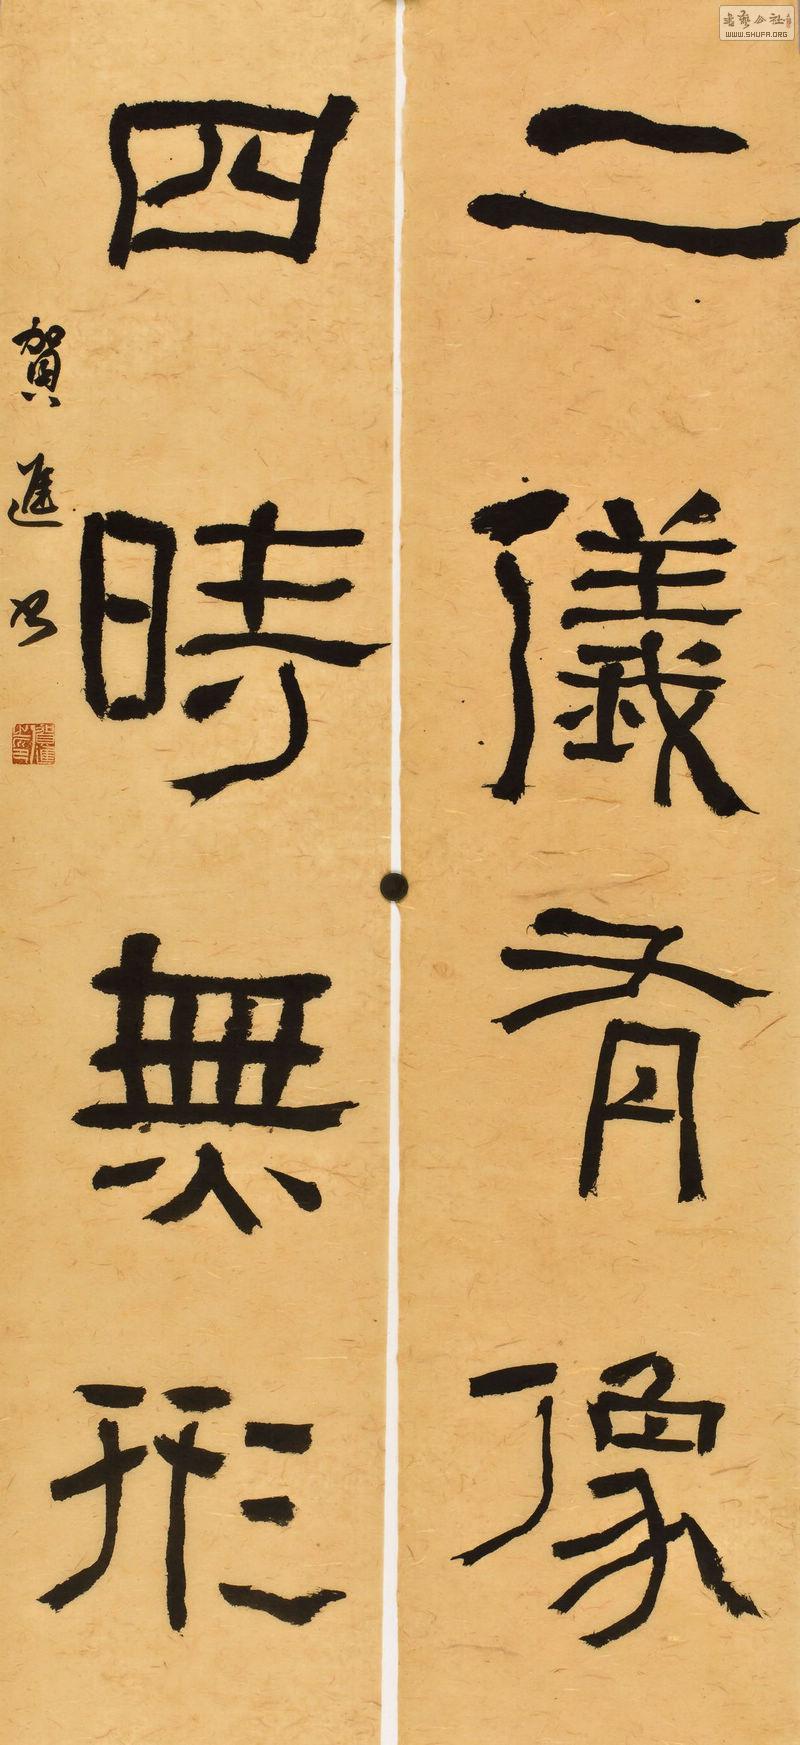 二儀有像
四時無形
賀進
書艺公社
WWW.SHUFA.ORG